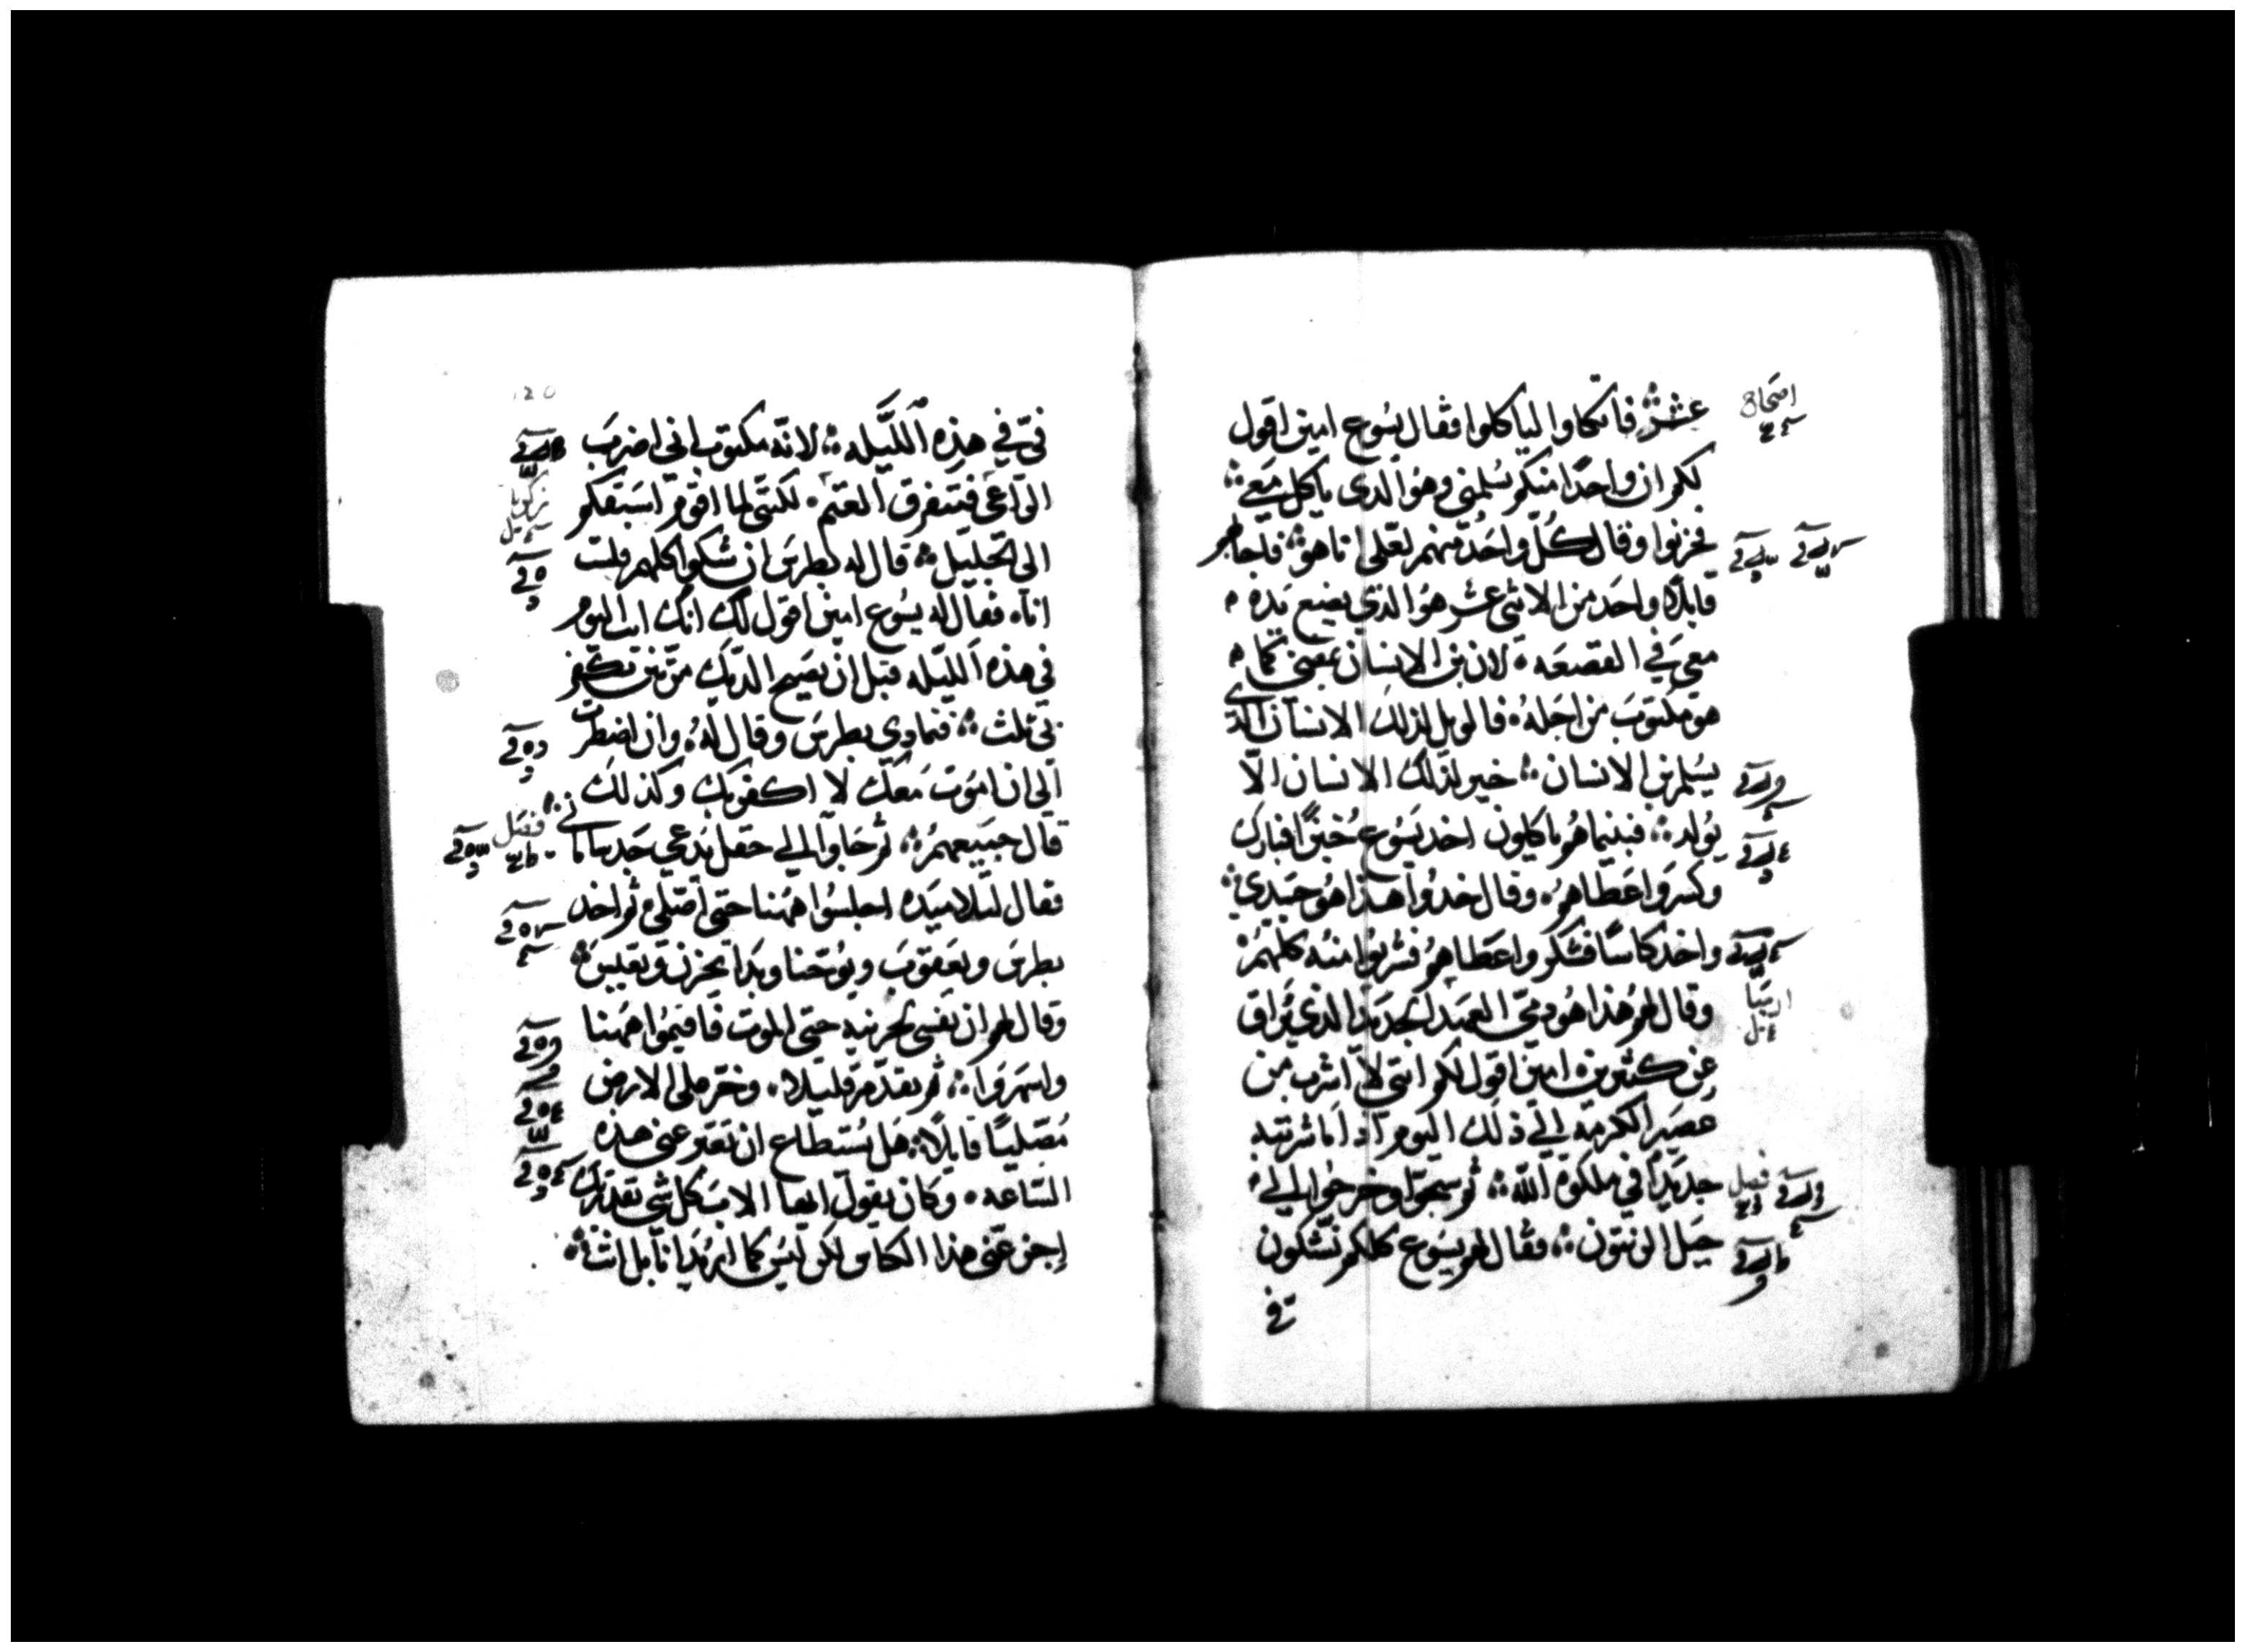 عشر فاتكاوا لياكلوا فقال يسوع امين اقول
لكم ان واحدًا منكم يسلمني وهو الدى ياكل معي
فحزنوا وقال كل واحد منهم لعلى انا هو فاجابهم
قايلاً واحد من الاثنى عشر هو الذي يضع يده
معي في القصعه لان بن الانسان يمضى كما
هو مكتوب من اجله فالويل لذلك الانسان الدى
يسلم بن الانسان خير لذلك الانسان الّا
يُولد فبينما هم ياكلون اخد يسوع خبزًا فبارك
وكسر واعطاهم وقال خدوا هذا هو جسدي
واخد كاسًا فشكر واعطاهم فشربوا منه كلهم
وقال لهم هذا هو دمي العهد الجديد الذي يُراق
عن كثيرين امين اقول لكم انني لا اشرب من
عصير الكرمه الي ذلك اليوم ادا ما شربته
فصل
جديدًا في ملكوة الله ثم سبحوا وخرجوا الي
جبل الزيتون فقال لهم يسوع كلكم تشكون
في
120
فيّ في هذه الليله لانه مكتوب اني اضرب
الراعي فيتفرق الغنم لكنني لما اقوم اسبقكم
الى الجليل قال له بطرس ان شكوا كلهم فلست
انا فقال له يسوع امين اقول لك انك انت اليوم
في هذه الليله قبل ان يصيح الديك مرتين تكفر
بي ثلث فتمادي بطرس وقال له وان اضطرت
الي ان اموت معك لا اكفر بك وكذلك
فصل
قال جميعهم ثم جاوا الي حقل يدعي جدسمانى
فقال لتلاميده اجلسوا ههنا حتى اصلي ثم اخد
بطرس ويعقوب ويوحنا وبدا يحزن ويعبس
وقال لهم ان نفسي لحزينه حتى الموت فاقيموا ههنا
واسهروا ثم تقدم قليلا وخر على الارض
مُصليًا قايلاً هل يُستطاع ان تعبر عني هده
الساعه وكان يقول ايها الاب كل شي بقدرتك
اجز عني هذا الكاس لكن ليس كما اريد انا بل انت